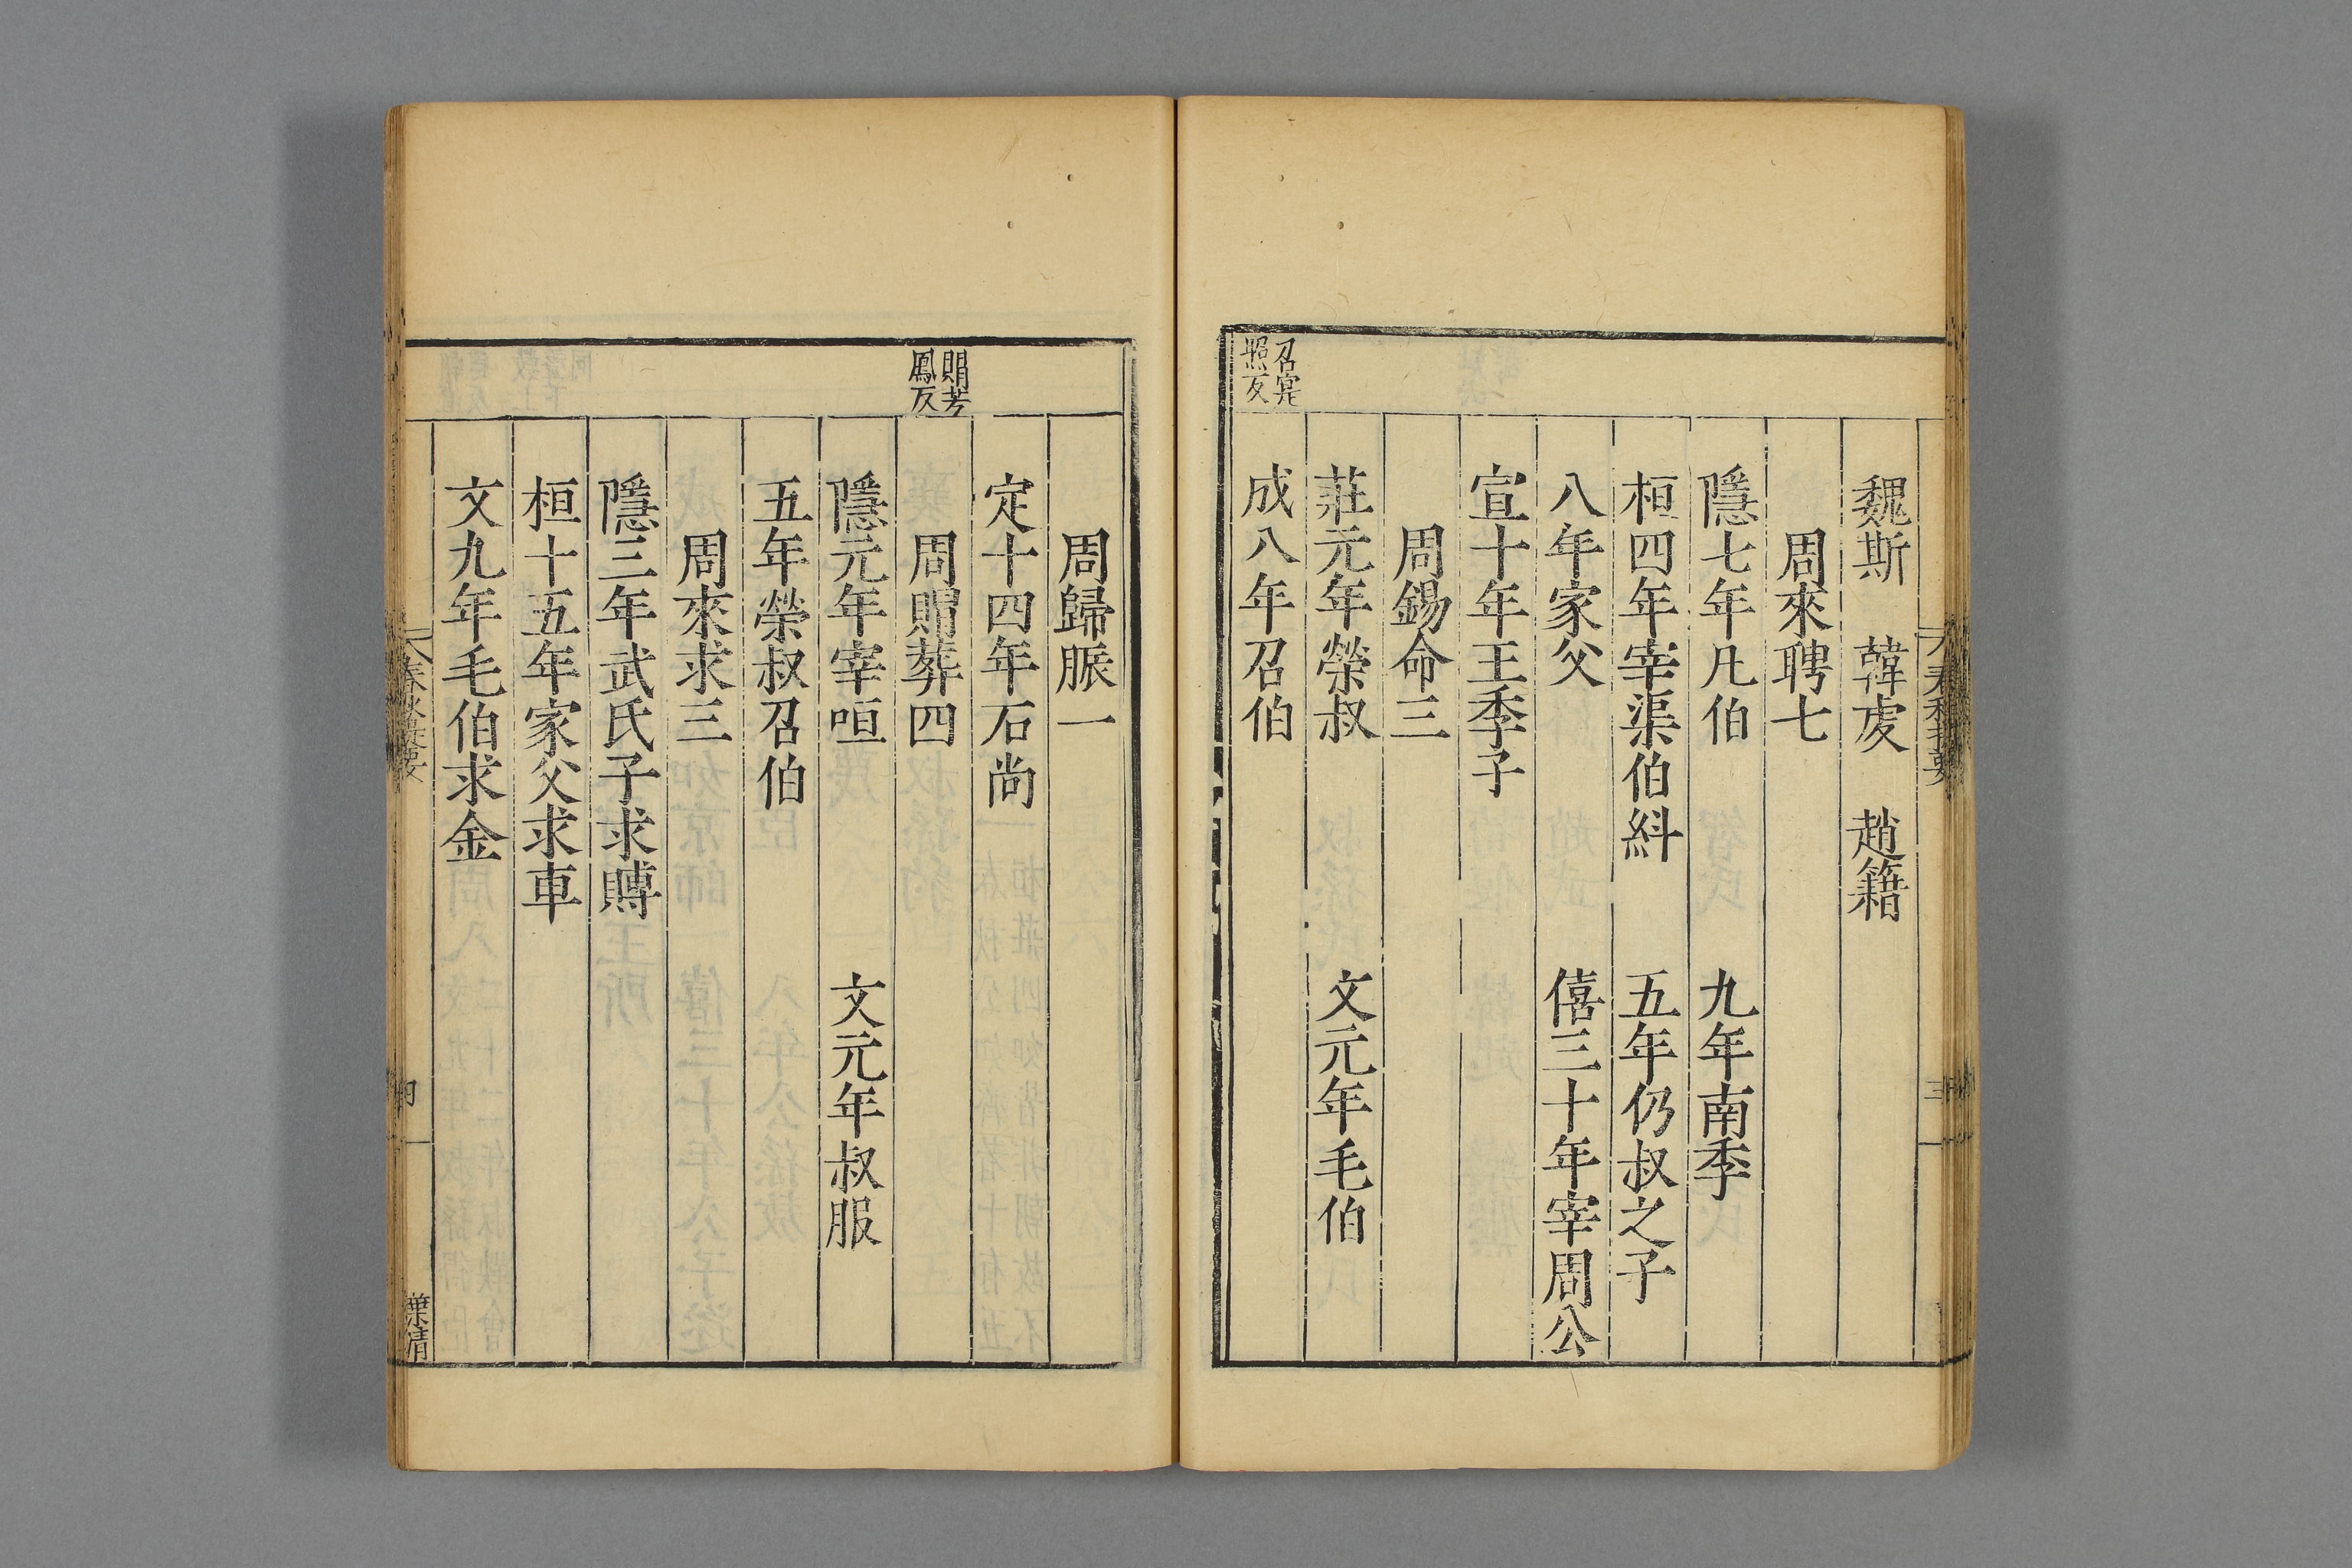 魏斯　韓虔　趙籍
周來聘七
隱七年凡伯　九年南季
桓四年宰渠伯糾　五年仍叔之子
八年家父　僖三十年宰周公
宣十年王季子
周錫命三
莊元年榮叔　文元年毛伯
召寔
照反
成八年召伯
周歸脤一
定十四年石尚
賵芳
鳳反
周賵葬四
隱元年宰咺　文元年叔服
五年榮叔召伯
周來求三
隱三年武氏子求賻
桓十五年家父求車
文九年毛伯求金
春秋提要
葉清